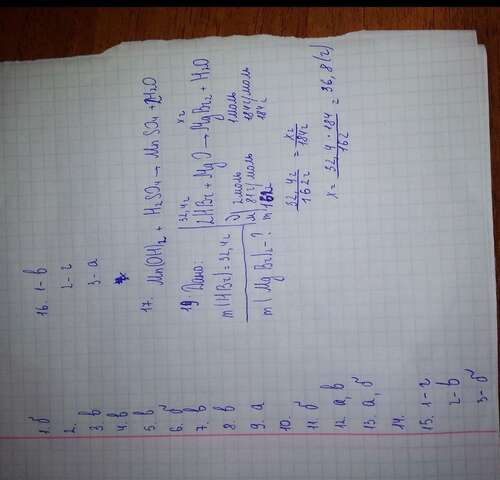 1. б
2.
3. в
4. в
5. в
6. б
7. в
8. в
9. а
10.
11. б
12. а, в
13. а, б
14.
15. 1-г
2-в
3-б
16. 1-в
2-г
3-а
17. Mn(OH)₂ + H₂SO₄ → MnSO₄ + 2H₂O
19 Дано:
m(HBr)=32,4г
m(MgBr)₂-?
32,4г xг
2HBr + MgO → MgBr₂ + H₂O
ν) 2моль 1моль
M) 81г/моль 184г/моль
m 162г 184г
32,4г/162г = xг/184г
x = 32,4·184/162 = 36,8(г)